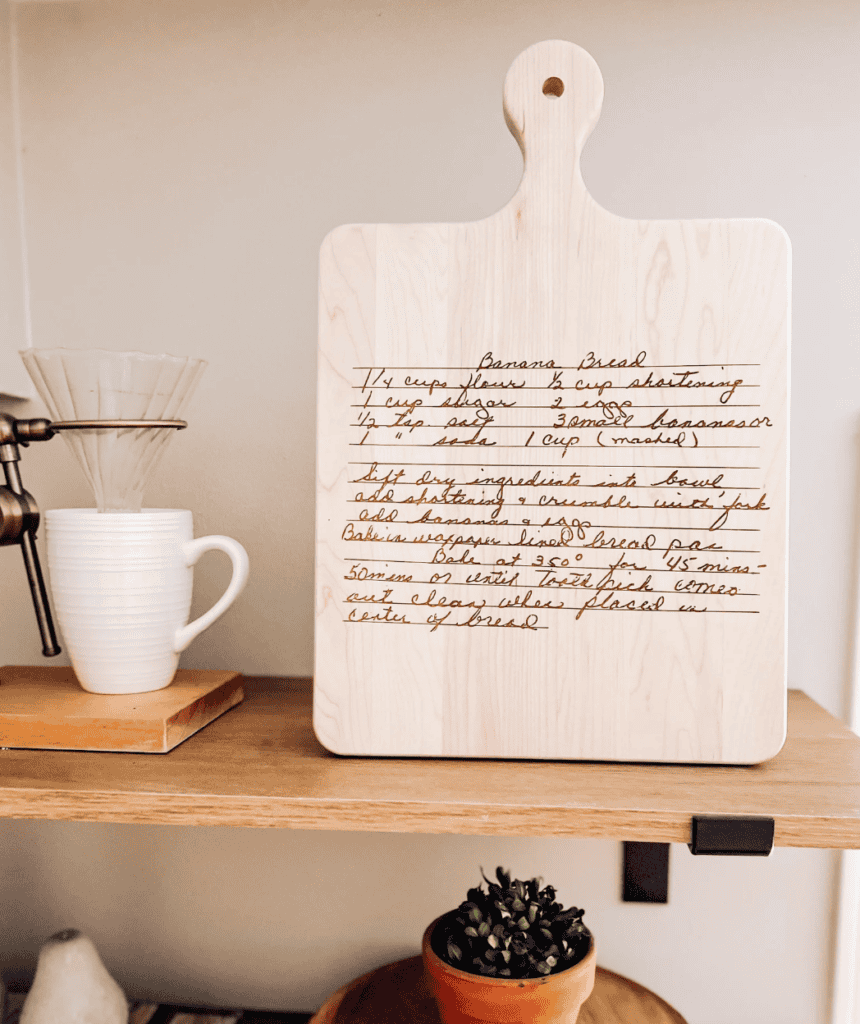 Banana Bread
1 1/4 cups flour ½ cup shortening
1 cup sugar 2 eggs
½ tsp. salt 3 small bananas or
1 " soda 1 cup (mashed)
Sift dry ingredients into bowl,
add shortening & crumble with fork
add bananas & eggs
Bake in waxpaper lined bread pan
Bake at 350° for 45 mins-
50 mins or until toothpick comes
out clean when placed in
center of bread